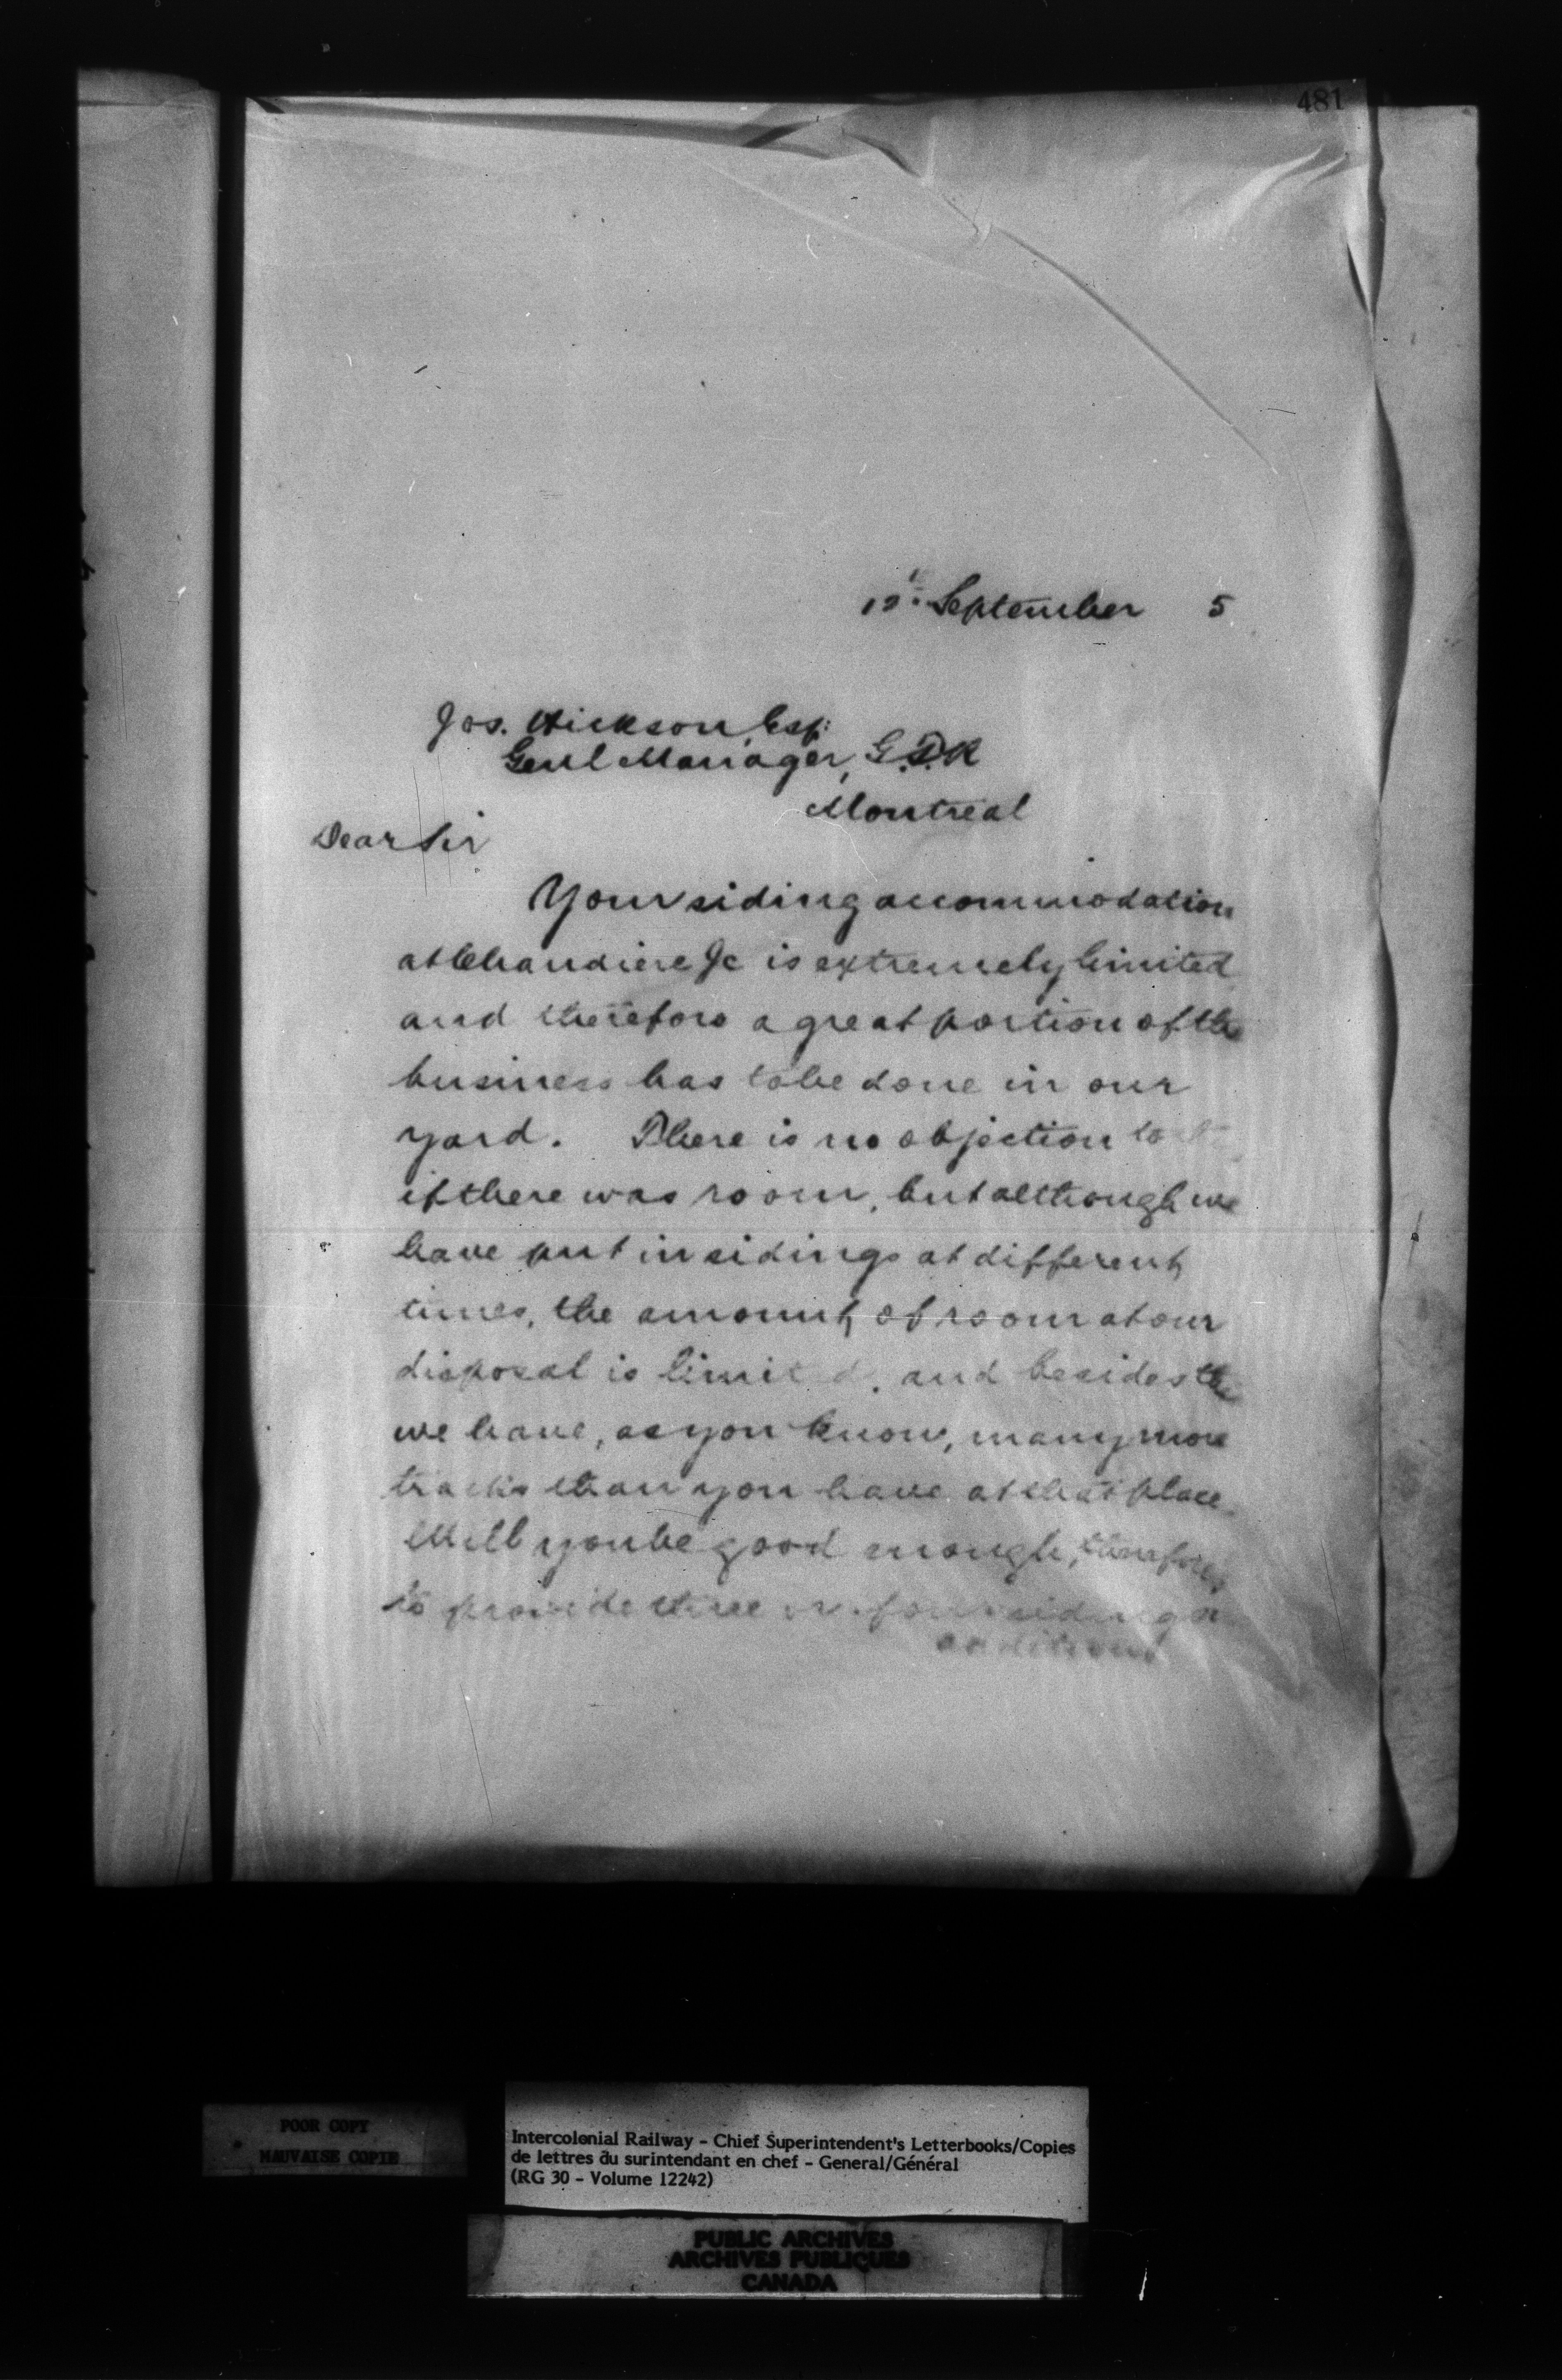 481
September 5
Jos. Hickson, Esq:
Genl Manager, G.T.R
Montreal
Dear Sir
Your siding accommodation
at Chaudiere Jc is extremely limited
and therefore a great portion of the
business has to be done in our
yard. There is no objection to
if there was room, but although we
have put in sidings at different
times, the amount of room at our
disposal is limited, and besides
we have, as you know, many more
tracks than you have at that place
Will you be good enough, therefore,
to provide three or four sidings
additional
POOR COPY
MAUVAISE COPIE
Intercolonial Railway - Chief Superintendent's Letterbooks/Copies
de lettres du surintendant en chef - General/Général
(RG 30 - Volume 12242)
PUBLIC ARCHIVES
ARCHIVES PUBLIQUES
CANADA